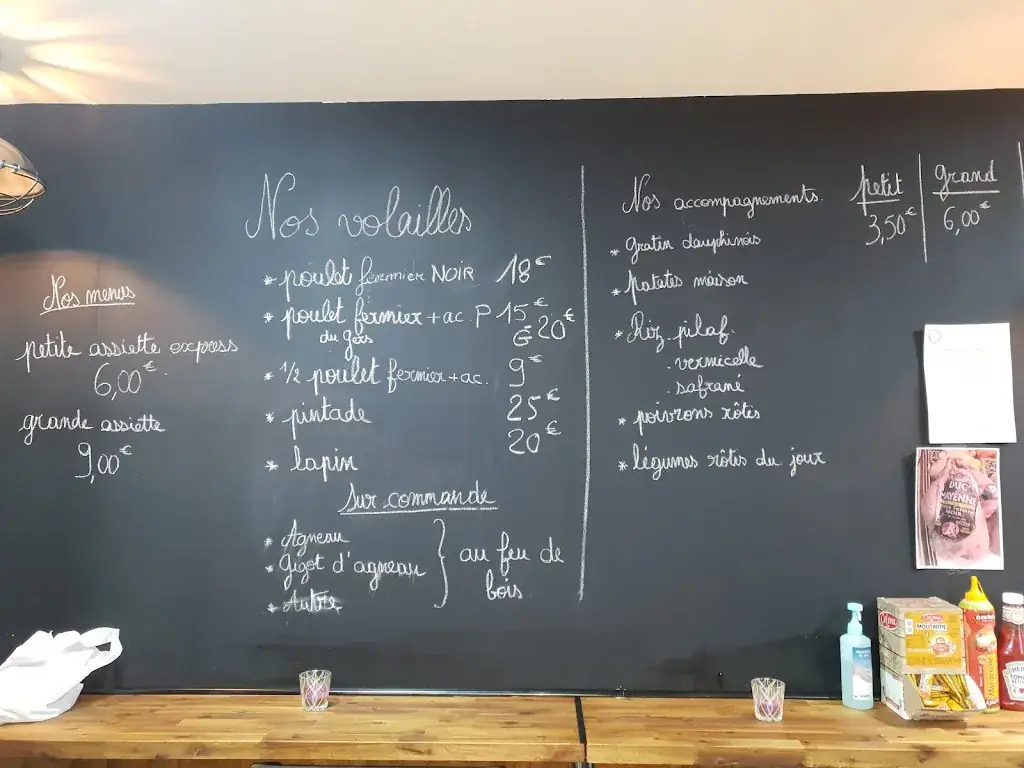 Nos menus
petite assiette express
6,00€
grande assiette
9,00€
Nos volailles
* poulet fermier NOIR 18€
* poulet fermier + ac. P 15€
du gers G 20€
* 1/2 poulet fermier + ac. 9€
* pintade 25€
* lapin 20€
Sur commande
* Agneau
* Gigot d'agneau
* Autre
au feu de
bois
Nos accompagnements. petit grand
3,50€ 6,00€
* gratin dauphinois
* patates maison
* Riz pilaf.
. vermicelle
. safrané
* poivrons rôtis
* légumes rôtis du jour
DUC
MAYENNE
NOIR
MOUTARDE
HEINZ
TOMATO
KETCHUP